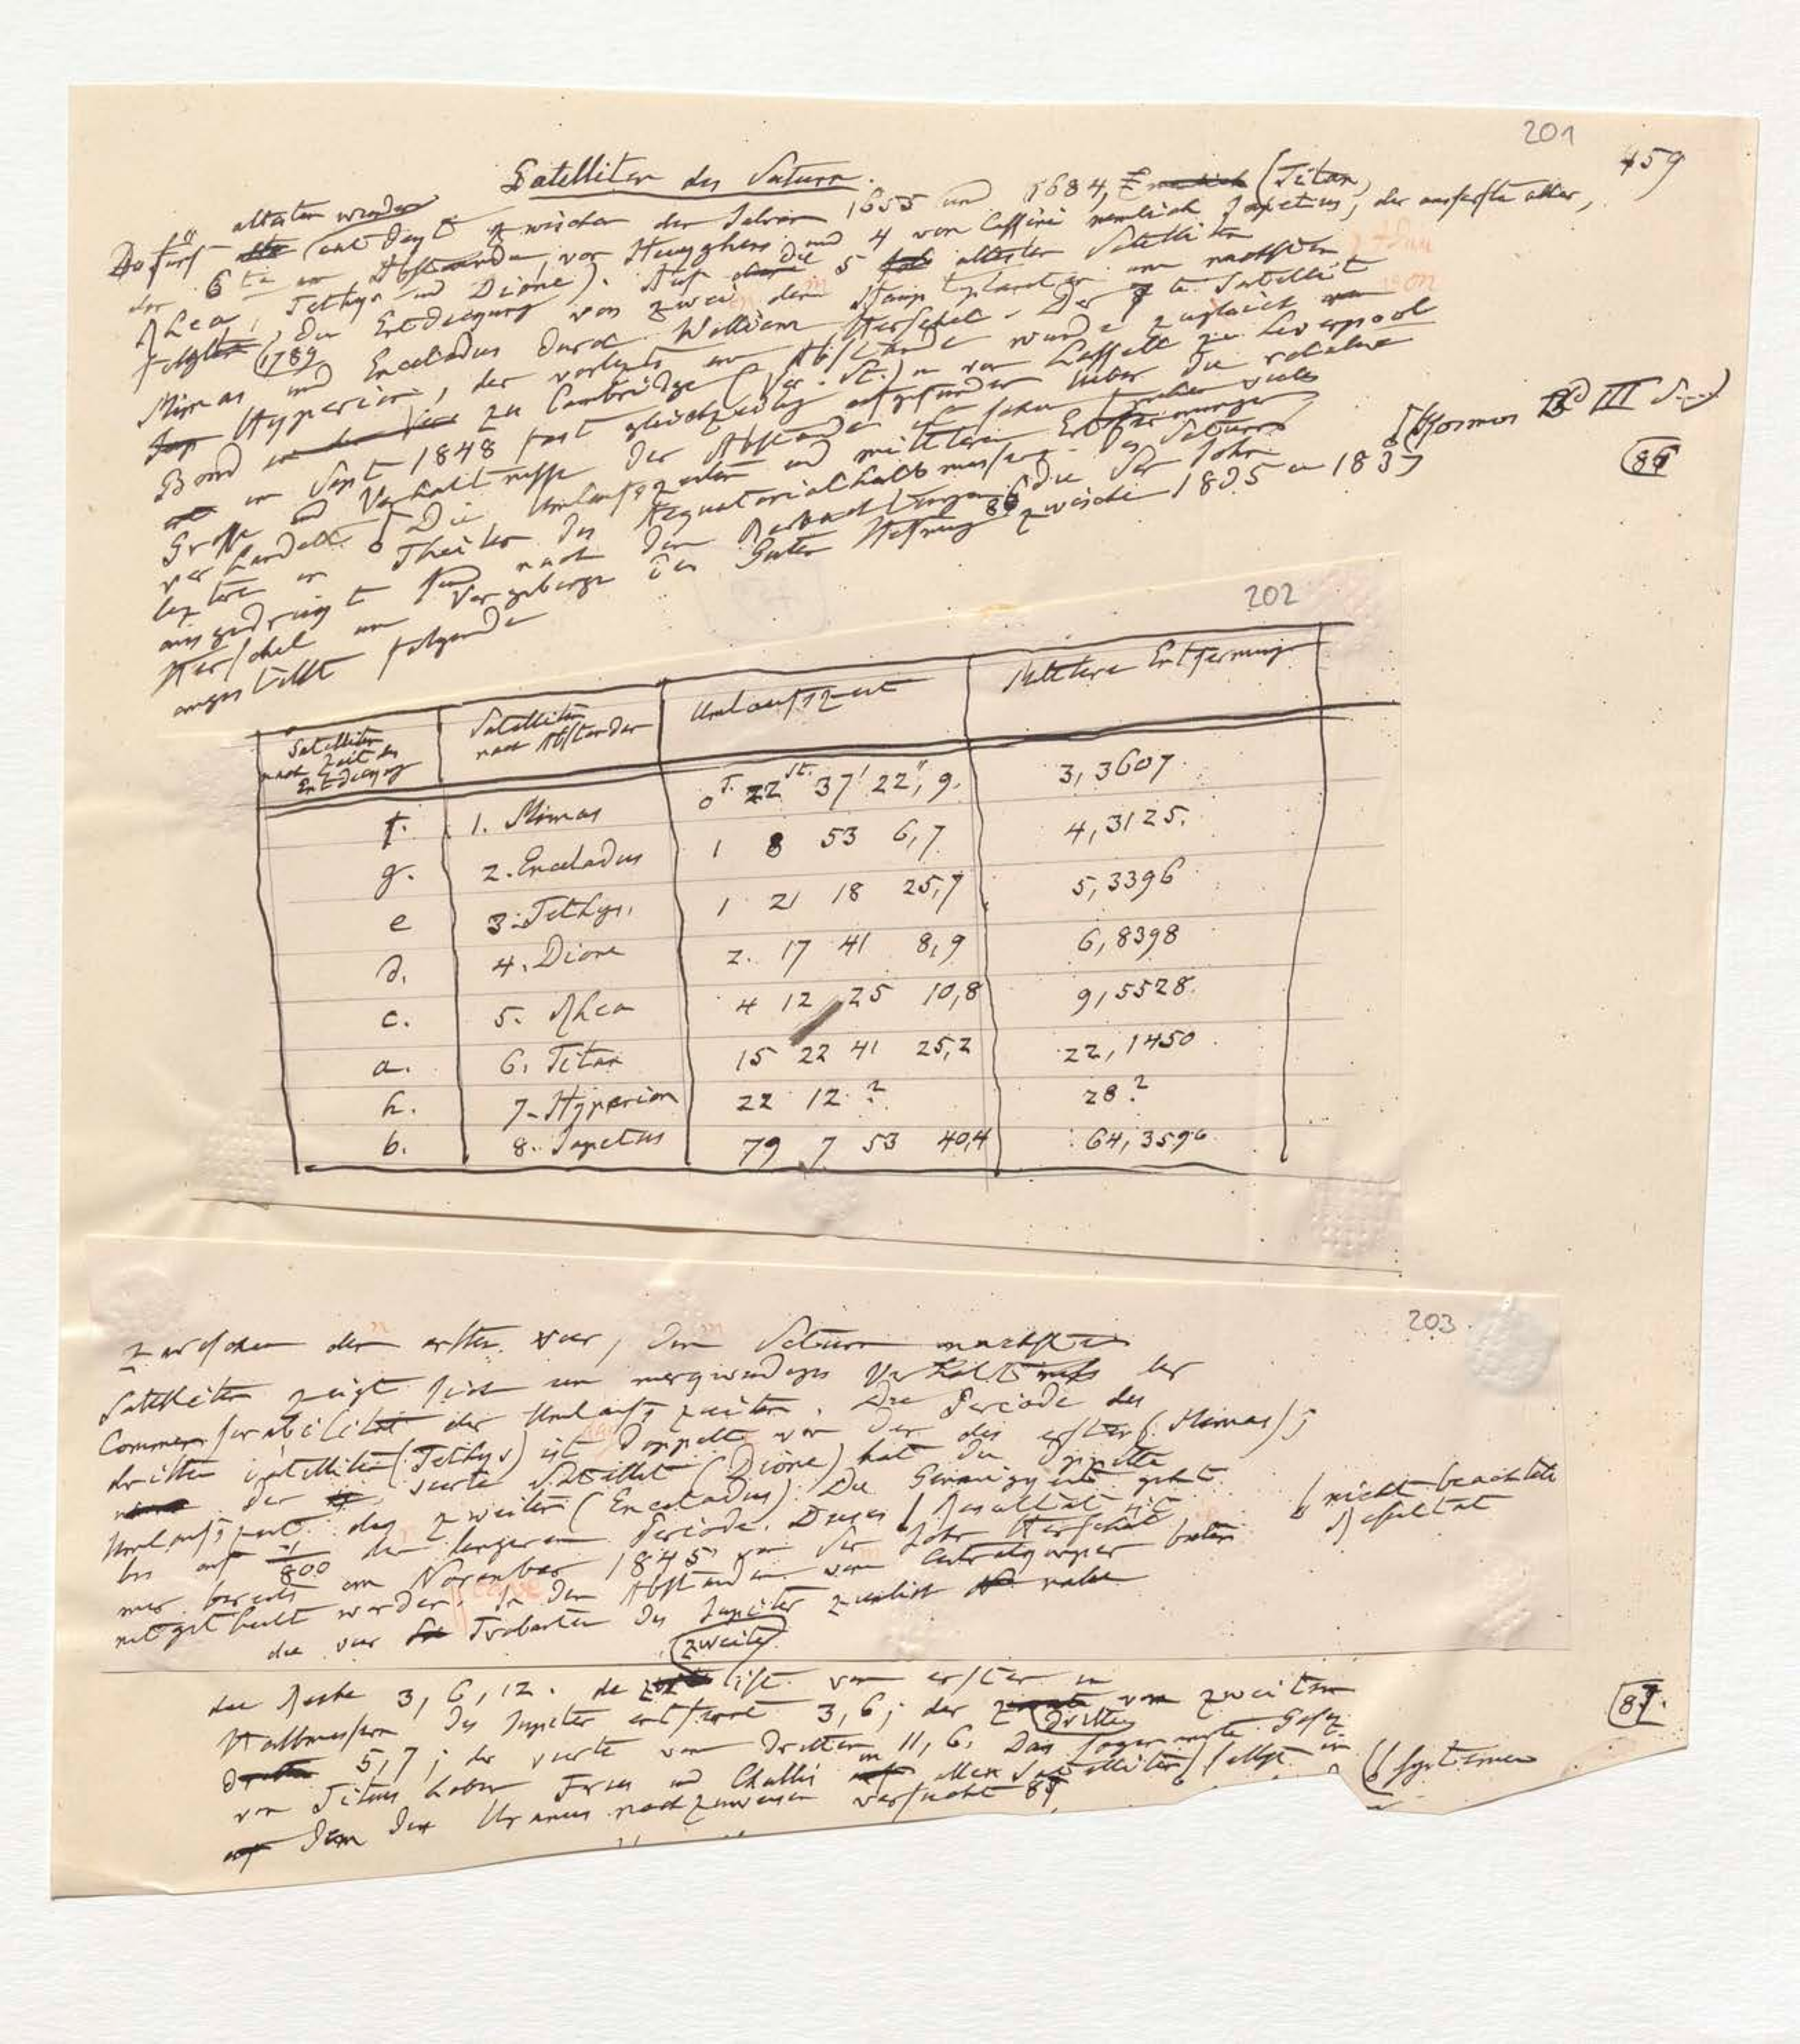 201
459
Satelliten des Saturn.
ältesten wurden
Die fünf entdeckt zwischen den Jahren 1655 und 1684, (Titan,
der 6te im Abstande, von Huyghens und 4 von Cassini nemlich Japetus, der äusserste aller,
Rhea, Tethys und Dione). Auf die 5 ältesten Satelliten
folgte 1789 die Entdeckung von zwei dem Hauptplaneten am nächsten
Mimas und Enceladus durch William Herschel. Der 7te Satellit
Hyperion, der vorletzte im Abstande wurde zugleich von
Bond zu Cambridge (Ver. St.) u von Lassell zu Liverpool
im Sept 1848 fast gleichzeitig aufgefunden Ueber die relative
Grösse und Verhältnisse der Abstände ist schon früher vieles
verhandelt Die Umlaufszeiten und mittleren Entfernungen
(Kosmos Bd III S. )
letztere in Theilen des Aequatorialhalbmessers des Saturns
86
ausgedrückt sind nach den Beobachtungen 86 die Sir John
Herschel am Vorgebirge der Guten Hofnung zwischen 1835 u 1837
angestellt folgende
202
Satelliten nach Zeit der Entdeckung | Satelliten nach Abständen | Umlaufszeit | Mittlere Entfernung
f. 1. Mimas 0T. 22St. 37' 22",9. 3,3607.
g. 2. Enceladus 1 8 53 6,7 4,3125.
e 3. Tethys. 1 21 18 25,7 5,3396
d. 4. Dione 2. 17 41 8,9 6,8398
c. 5. Rhea 4 12 25 10,8 9,5528.
a. 6. Titan 15 22 41 25,2 22,1450
h. 7. Hyperion 22 12 ? 28?
b. 8. Japetus 79 7 53 40,4 64,3590
203
Zwischen den ersten vier, dem Saturn nächsten
Satelliten zeigt sich ein merkwürdiges Verhältniss der
Commensurabilität der Umlaufszeiten. Die Periode des
dritten Satelliten (Tethys) ist doppelt von der des ersten (Mimas);
der vierte Satellit (Dione) hat die doppelte
Umlaufszeit des zweiten (Enceladus). Die Genauigkeit geht
bis auf 1/800 der längeren Periode. Dieses Resultat ist
nicht beachtete
Resultat
mir bereits im November 1845 von Sir John Herschel
mitgetheilt worden. In den Abständen vom Centralkörper bieten
die vier Trabanten des Jupiter zunächst nahe
die Reihe 3, 6, 12. der zweite ist vom ersten in
Halbmessern des Jupiter entfernt 3,6; der dritte vom zweiten
87.
5,7; der vierte vom dritten 11,6. Das sogenannte Gesez
von Titius haben Fries und Challis in allen Satelliten selbst in
Systemen
dem des Uranus nachzuweisen versucht 87